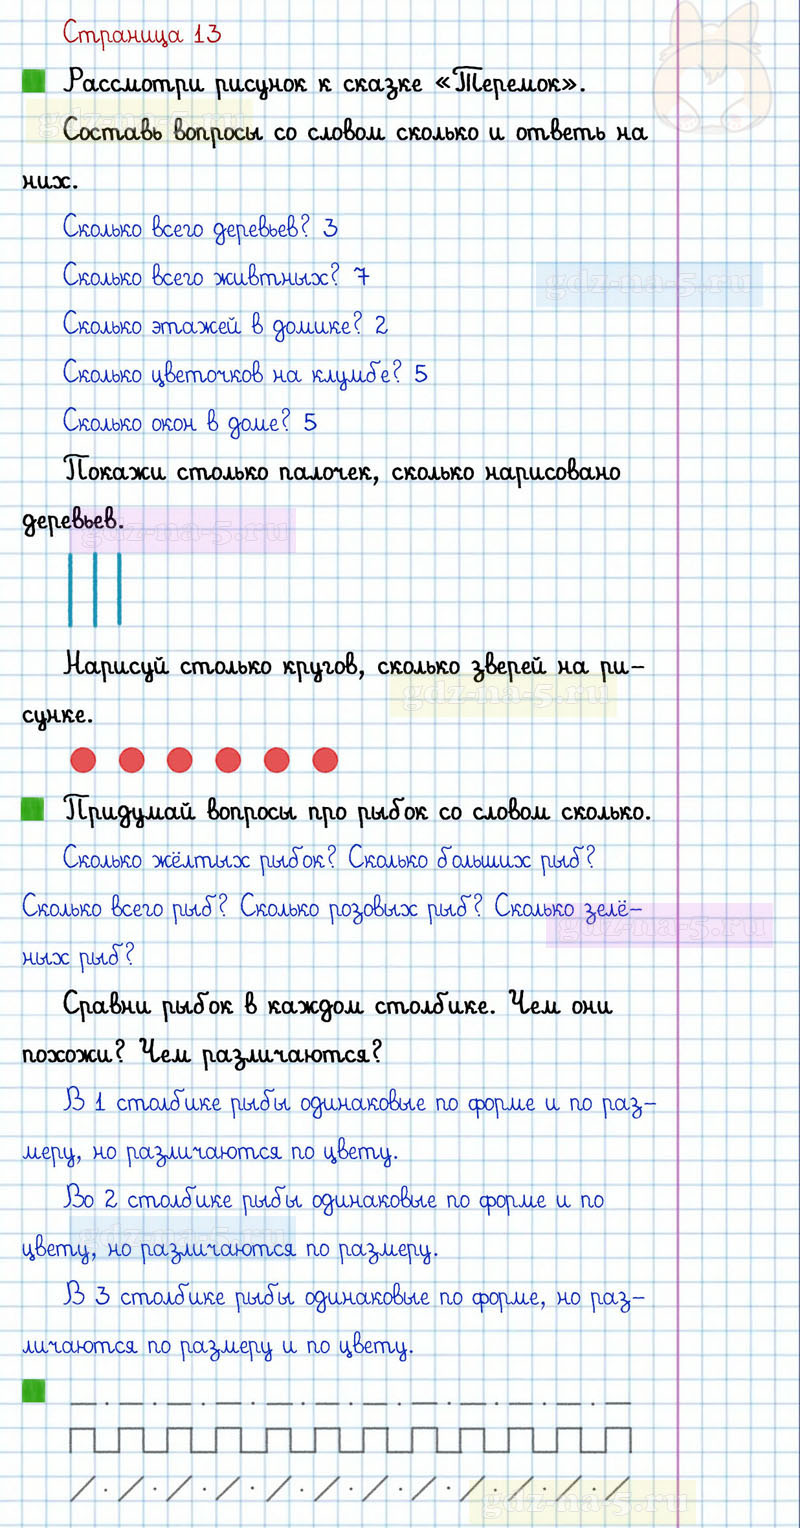 Страница 13
Рассмотри рисунок к сказке «Теремок».
gdz-na-5.ru
Составь вопросы со словом сколько и ответь на
них.
Сколько всего деревьев? 3
Сколько всего живтных? 7
gdz-na-5.ru
Сколько этажей в домике? 2
Сколько цветочков на клумбе? 5
Сколько окон в доме? 5
Покажи столько палочек, сколько нарисовано
деревьев.
gdz-na-5.ru
Нарисуй столько кругов, сколько зверей на ри-
gdz-na-5.ru
сунке.
Придумай вопросы про рыбок со словом сколько.
Сколько жёлтых рыбок? Сколько больших рыб?
Сколько всего рыб? Сколько розовых рыб? Сколько зелё-
gdz-na-5.ru
ных рыб?
Сравни рыбок в каждом столбике. Чем они
похожи? Чем различаются?
В 1 столбике рыбы одинаковые по форме и по раз-
меру, но различаются по цвету.
Во 2 столбике рыбы одинаковые по форме и по
gdz-na-5.ru
цвету, но различаются по размеру.
В 3 столбике рыбы одинаковые по форме, но раз-
личаются по размеру и по цвету.
gdz-na-5.ru